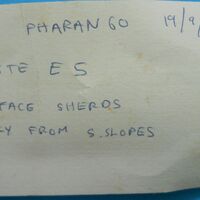 PHARANGO 19/9/
TE E S
FACE SHERDS
EY FROM S. SLOPES